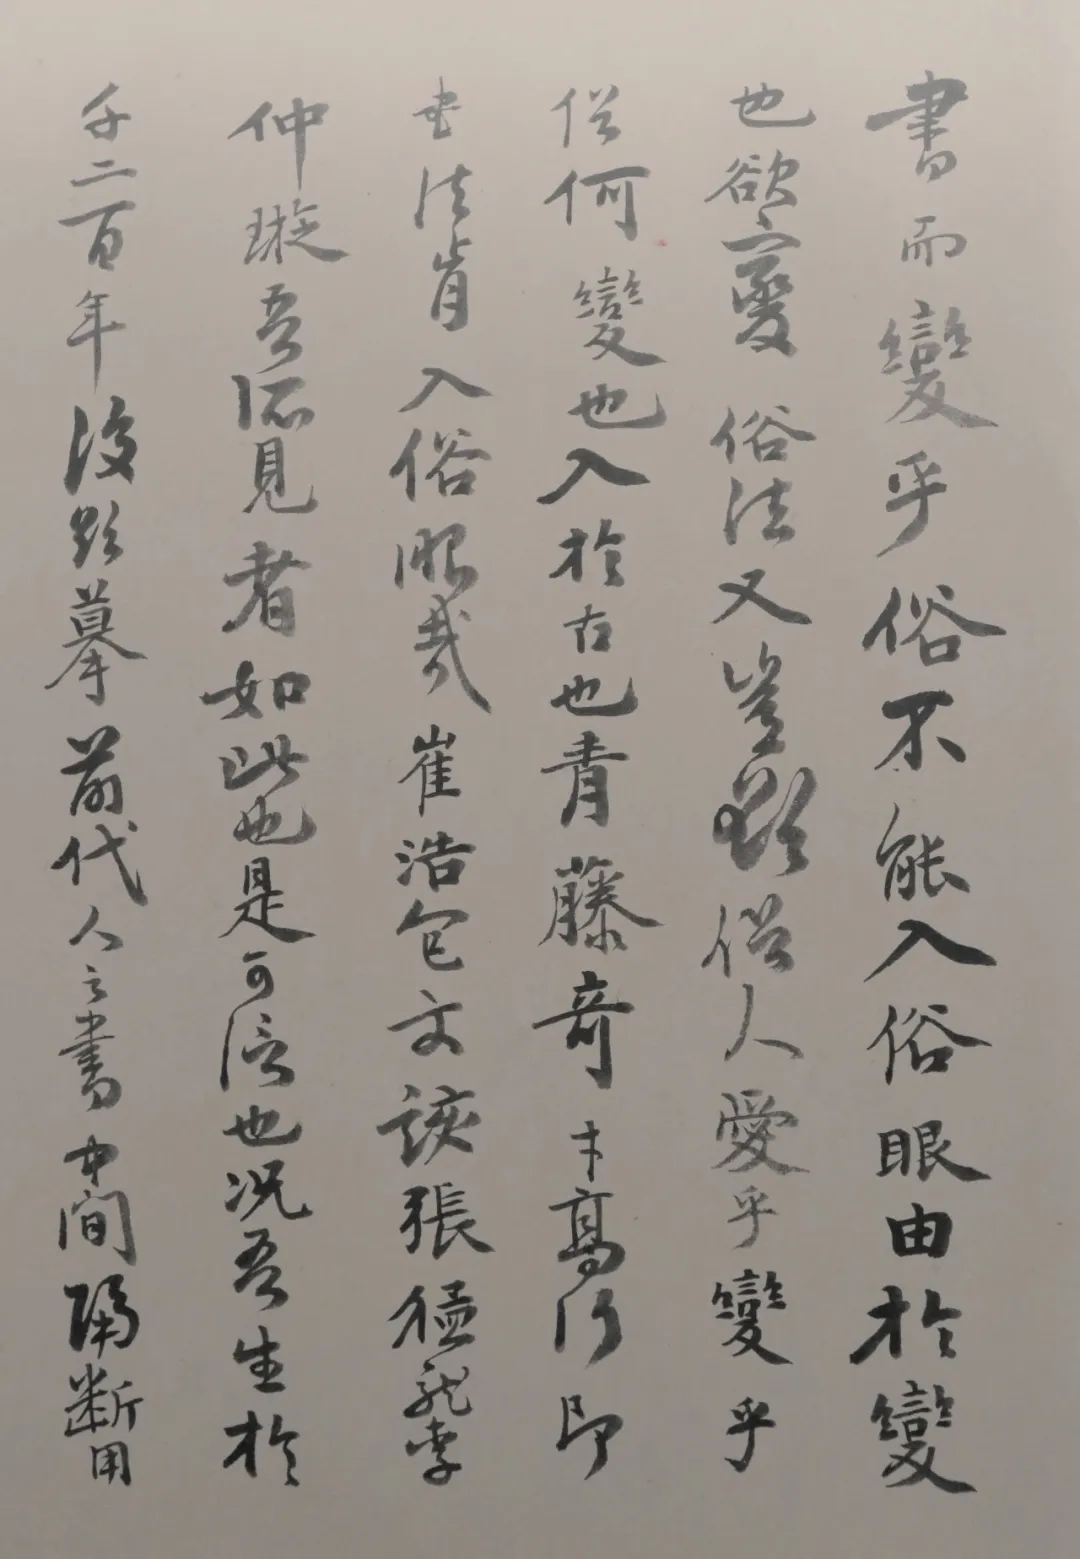 書而變乎俗不能入俗眼由於變
也欲變俗法又豈點俗人愛乎變乎
俗何變也入於古也青藤奇才高行即
書法肯入俗眼哉崔浩包文該張猛龍李
仲璇吾所見者如此也是可信也況吾生於
千二百年後欲摹前代人之書中間隔斷用